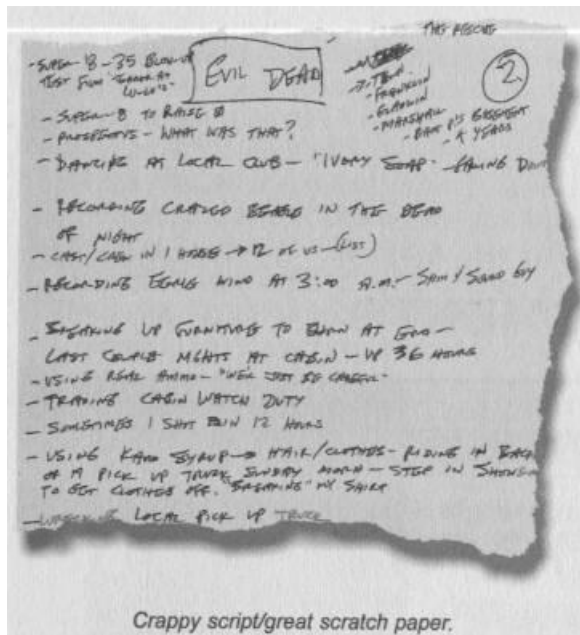 THE
- SUPER-8-35 BLOW-UP
TEST FILM
EVIL DEAD
2
- TENN.
- FRANKLIN
- GLADWIN
- MARSHALL
- BART P'S BASEMENT
- 4 YEARS
- SUPER-8 TO RAISE $
- PROSPECTUS - WHAT WAS THAT?
- DANCING AT LOCAL CLUB - "IVORY SOAP"
- RECORDING CRAZED IN THE DEAD
OF NIGHT
- CAST/CREW IN 1 HOUSE → 12 OF US - (LIST)
- RECORDING EERIE WIND AT 3:00 A.M. - SAM / SOUND GUY
- BREAKING UP FURNITURE TO BURN AT END -
LAST COUPLE NIGHTS AT CABIN - UP 36 HOURS
- USING REAL AMMO - "WE'LL JUST BE CAREFUL"
- TRADING CABIN WATCH DUTY
- SOMETIMES 1 SHOT IN 12 HOURS
- USING KARO SYRUP → HAIR/CLOTHES - RIDING IN BACK
OF A PICK UP TRUCK SUNDAY MORN - STEP IN SHOWER
TO GET CLOTHES OFF. "BREAKING" MY SHIRT
- LOCAL PICK UP TRUCK
Crappy script/great scratch paper.